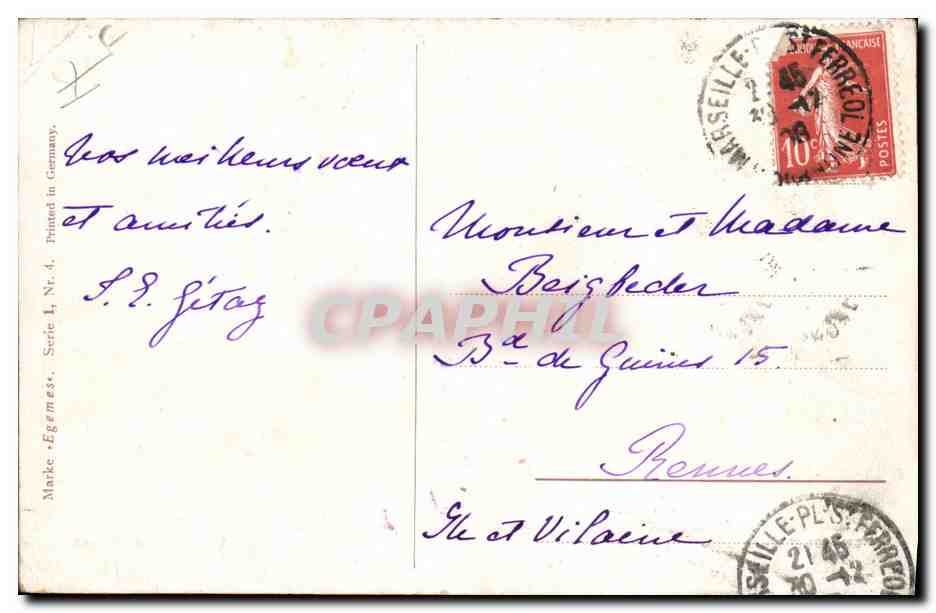 Marke »Egemes«. Serie 1, Nr. 4. Printed in Germany.
Vos meilleurs vœux
et amitiés.
S. E. Gétaz
Monsieur et Madame
Beigbeder
Bd de Guines 15
Rennes.
Ile et Vilaine
MARSEILLE-PL ST FERREOL
45
-12
FRANÇAISE
10c
POSTES
MARSEILLE-PL-ST FERREOL
21 45
-12
CPAPHIL